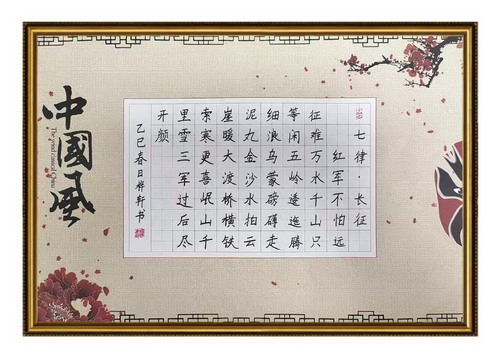 七律·长征
红军不怕远
征难万水千山只
等闲五岭逶迤腾
细浪乌蒙磅礴走
泥丸金沙水拍云
崖暖大渡桥横铁
索寒更喜岷山千
里雪三军过后尽
开颜
乙巳春日桦轩书
中國風